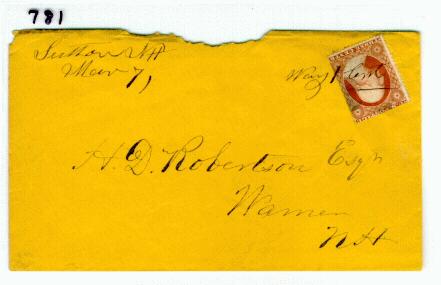 781
Sutton NH
Mar 7,
Way 1 cent
H. D. Robertson Esqr
Warner
NH